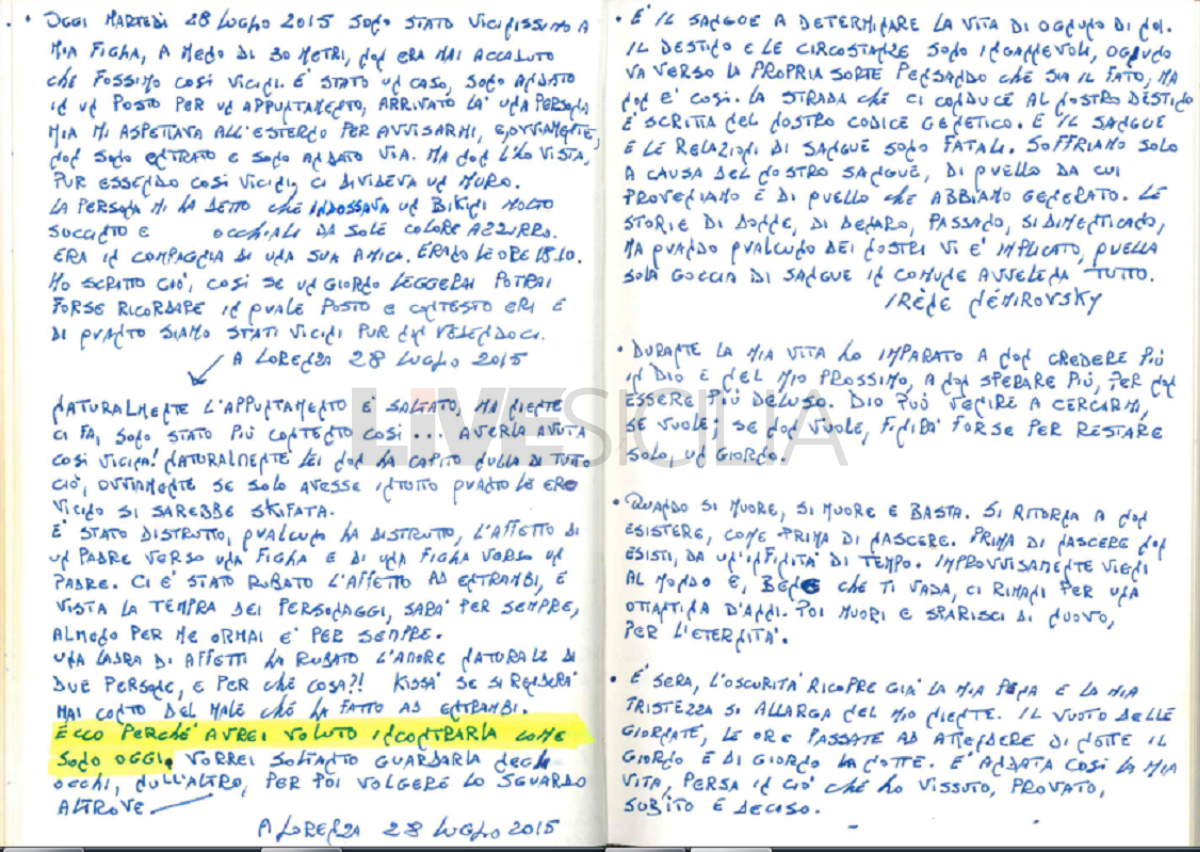 • OGGI MARTEDÌ 28 LUGLIO 2015 SONO STATO VICINISSIMO A
MIA FIGLIA, A MENO DI 30 METRI, NON ERA MAI ACCADUTO
CHE FOSSIMO COSÌ VICINI. È STATO UN CASO, SONO ANDATO
IN UN POSTO PER UN APPUNTAMENTO, ARRIVATO LÀ UNA PERSONA
MIA MI ASPETTAVA ALL'ESTERNO PER AVVISARMI, E OVVIAMENTE,
NON SONO ENTRATO E SONO ANDATO VIA. MA NON L'HO VISTA,
PUR ESSENDO COSÌ VICINI, CI DIVIDEVA UN MURO.
LA PERSONA MI HA DETTO CHE INDOSSAVA UN BIKINI MOLTO
SUCCINTO E OCCHIALI DA SOLE COLORE AZZURRO.
ERA IN COMPAGNIA DI UNA SUA AMICA. ERANO LE ORE 15.10.
HO SCRITTO CIÒ, COSÌ SE UN GIORNO LEGGERAI POTRAI
FORSE RICORDARE IN QUALE POSTO E CONTESTO ERI E
DI QUANTO SIAMO STATI VICINI PUR NON VEDENDOCI.
A LORENZA 28 LUGLIO 2015
NATURALMENTE L'APPUNTAMENTO È SALTATO, MA NIENTE
CI FA, SONO STATO PIÙ CONTENTO COSÌ... AVERLA AVUTA
COSÌ VICINA! NATURALMENTE LEI NON HA CAPITO NULLA DI TUTTO
CIÒ, OVVIAMENTE SE SOLO AVESSE INTUITO QUANTO LE ERO
VICINO SI SAREBBE SKIFATA.
È STATO DISTRUTTO, QUALCUNO HA DISTRUTTO, L'AFFETTO DI
UN PADRE VERSO UNA FIGLIA E DI UNA FIGLIA VERSO UN
PADRE. CI È STATO RUBATO L'AFFETTO AD ENTRAMBI, E
VISTA LA TEMPRA DEI PERSONAGGI, SARÀ PER SEMPRE,
ALMENO PER ME ORMAI È PER SEMPRE.
UNA LADRA DI AFFETTI HA RUBATO L'AMORE NATURALE DI
DUE PERSONE, E PER CHE COSA?! KISSÀ SE SI RENDERÀ
MAI CONTO DEL MALE CHE HA FATTO AD ENTRAMBI.
ECCO PERCHÉ AVREI VOLUTO INCONTRARLA COME
SONO OGGI. VORREI SOLTANTO GUARDARLA NEGLI
OCCHI, NULL'ALTRO, PER POI VOLGERE LO SGUARDO
ALTROVE.
A LORENZA 28 LUGLIO 2015
• È IL SANGUE A DETERMINARE LA VITA DI OGNUNO DI NOI.
IL DESTINO E LE CIRCOSTANZE SONO INGANNEVOLI, OGNUNO
VA VERSO LA PROPRIA SORTE PENSANDO CHE SIA IL FATO, MA
NON È COSÌ. LA STRADA CHE CI CONDUCE AL NOSTRO DESTINO
È SCRITTA NEL NOSTRO CODICE GENETICO. È IL SANGUE
E LE RELAZIONI DI SANGUE SONO FATALI. SOFFRIAMO SOLO
A CAUSA DEL NOSTRO SANGUE, DI QUELLO DA CUI
PROVENIAMO E DI QUELLO CHE ABBIAMO GENERATO. LE
STORIE DI DONNE, DI DENARO, PASSANO, SI DIMENTICANO,
MA QUANDO QUALCUNO DEI NOSTRI VI È IMPLICATO, QUELLA
SOLA GOCCIA DI SANGUE IN COMUNE AVVELENA TUTTO.
IRÈNE NÉMIROVSKY
• DURANTE LA MIA VITA HO IMPARATO A NON CREDERE PIÙ
IN DIO E NEL MIO PROSSIMO, A NON SPERARE PIÙ, PER NON
ESSERE PIÙ DELUSO. DIO PUÒ VENIRE A CERCARMI,
SE VUOLE; SE NON VUOLE, FINIRÀ FORSE PER RESTARE
SOLO, UN GIORNO.
• QUANDO SI MUORE, SI MUORE E BASTA. SI RITORNA A NON
ESISTERE, COME PRIMA DI NASCERE. PRIMA DI NASCERE NON
ESISTI, DA UN'INFINITÀ DI TEMPO. IMPROVVISAMENTE VIENI
AL MONDO E, BENE CHE TI VADA, CI RIMANI PER UNA
OTTANTINA D'ANNI. POI MUORI E SPARISCI DI NUOVO,
PER L'ETERNITÀ.
• È SERA, L'OSCURITÀ RICOPRE GIÀ LA MIA PENA E LA MIA
TRISTEZZA SI ALLARGA NEL MIO NIENTE. IL VUOTO DELLE
GIORNATE, LE ORE PASSATE AD ATTENDERE DI NOTTE IL
GIORNO E DI GIORNO LA NOTTE. È ANDATA COSÌ LA MIA
VITA, PERSA IN CIÒ CHE HO VISSUTO, PROVATO,
SUBÌTO E DECISO.
LIVESICILIA